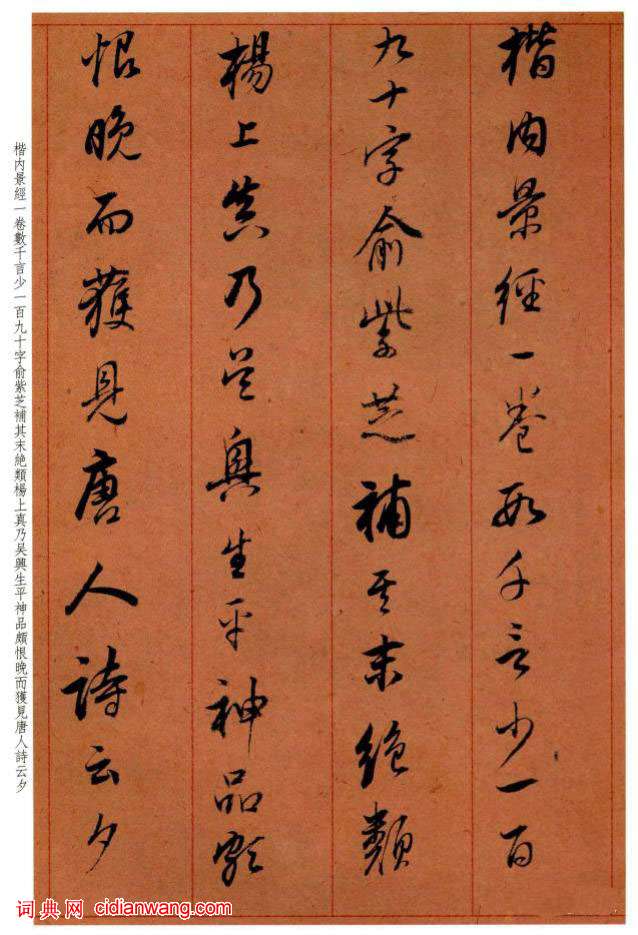 楷内景經一卷數千言少一百
九十字俞紫芝補其末絶類
楊上真乃吴興生平神品頗
恨晚而獲見唐人詩云夕
楷内景經一卷數千言少一百九十字俞紫芝補其末絶類楊上真乃吴興生平神品頗恨晚而獲見唐人詩云夕
词典网 cidianwang.com